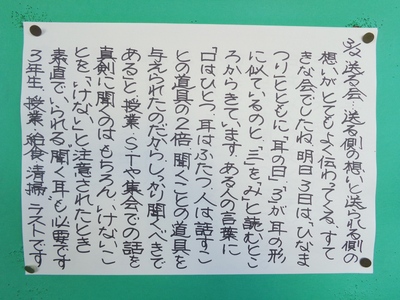 送る会…送る側の想いと送られる側の
想いがとてもよく伝わってくる、すて
きな会でしたね。明日3日は、「ひなま
つり」とともに、「耳の日」。「3」が耳の形
に似ているのと、「三」を「み」と読むとこ
ろからきています。ある人の言葉に
「口はひとつ、耳はふたつ。人は話すこ
との道具の2倍、聞くことの道具を
与えられたのだから、しっかり聞くべきで
ある」と。授業、STや集会での話を
真剣に聞くのはもちろん、いけないこ
とを、「いけない」と注意されたとき
素直でいられる「聞く耳」も必要です
3年生、授業、給食、清掃、ラストです